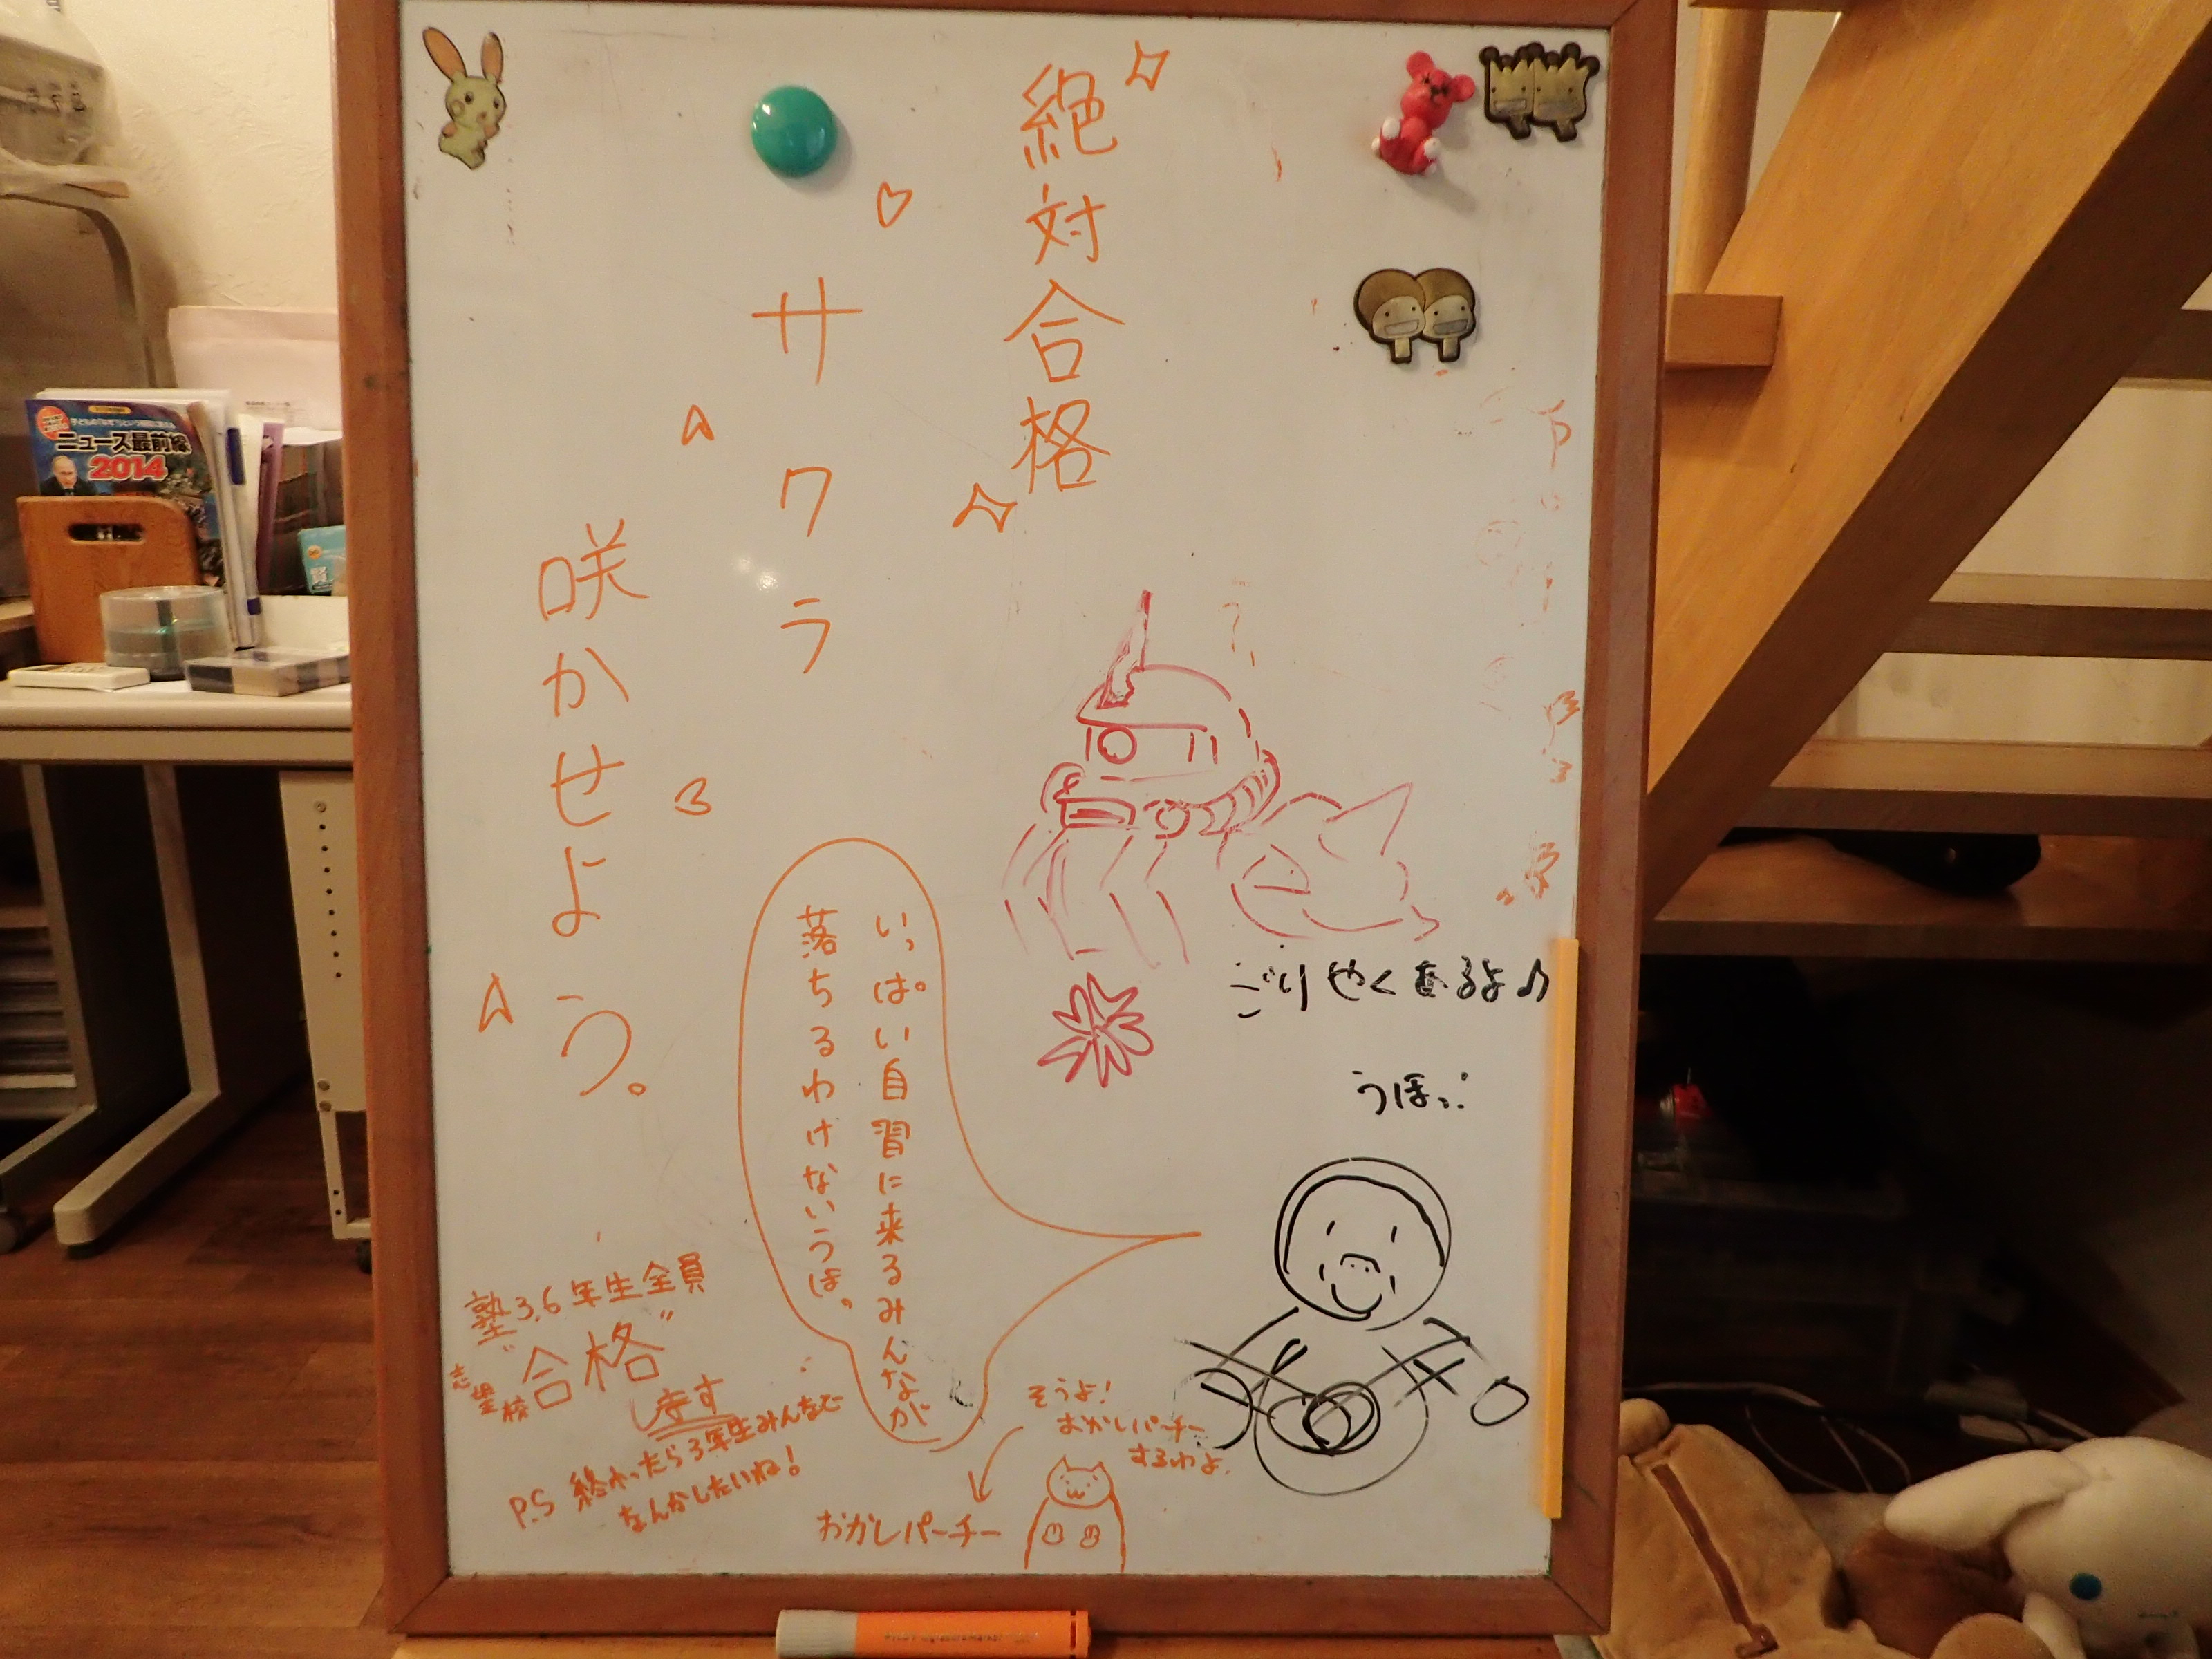 絶対合格
サクラ
咲かせよう。
ごりやくあるよ♪
うほっ!
いっぱい自習に来るみんなが
落ちるわけないうほ。
塾3,6年生全員
志望校"合格"
します
P.S 終わったら3年生みんなで
なんかしたいね!
そうよ!
おかしパーチー
するわよ.
おかしパーチー
ニュース最前線
2014